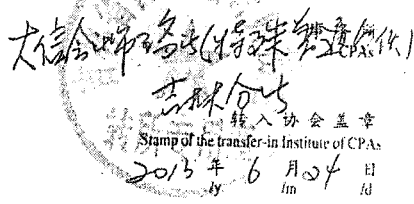 大信会计师事务所(特殊普通合伙)
CPAs
吉林分所
转入协会盖章
Stamp of the transfer-in Institute of CPAs
2013 年 6 月 24 日
/y /m /d